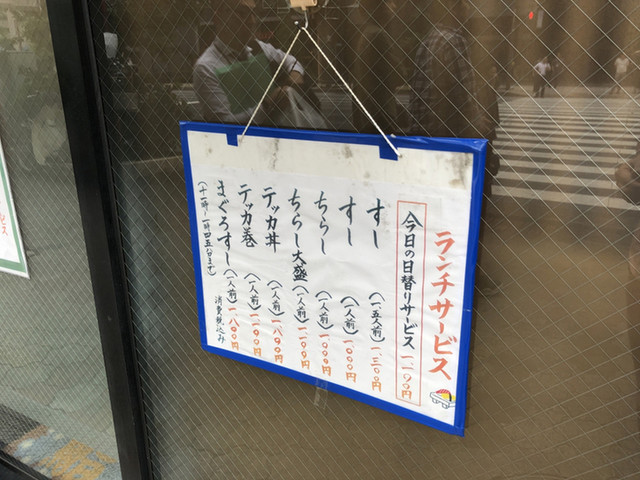 ランチサービス
今日の日替りサービス 一.一〇〇円
すし (一.五人前) 一.三〇〇円
すし (一人前) 一〇〇〇円
ちらし (一人前) 一〇〇〇円
ちらし大盛 (一人前) 一.一〇〇円
テッカ丼 (一人前) 一.一〇〇円
テッカ巻 (一人前) 一.一〇〇円
まぐろすし (一人前) 一.八〇〇円
(十一時〜一時四五分まで) 消費税込み
ビス